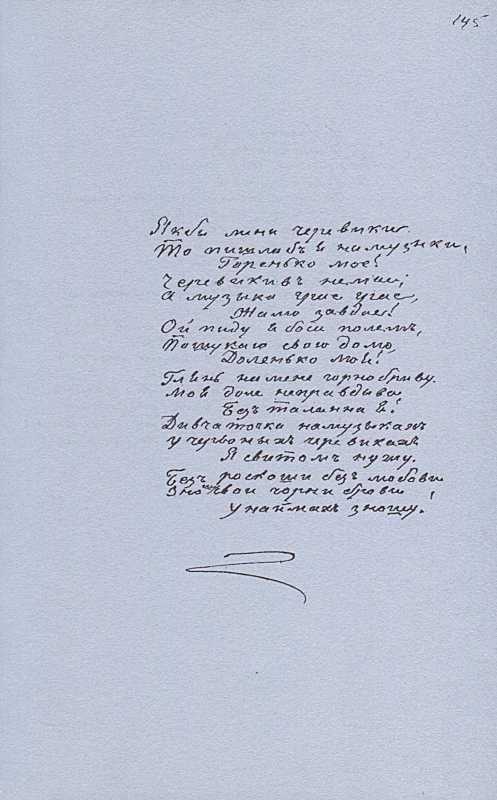 145
Якби мини черевики
То пишлабъ я на музыки,
Горенько мое!
Черевыкивъ немае;
А музыка грае грае,
Жалю завдае!
Ой пиду я боса полемъ,
Пошукаю свою долю
Доленько моя!
Глянь на мене чорнобриву.
Моя доле неправдыва
Безъ таланна я!
Дивчаточка на музыкахъ
у червоныхъ черевикахъ
Я свитомъ нужу.
Безъ роскоши безъ любови
Зношу свои чорни брови,
У наймахъ зношу.